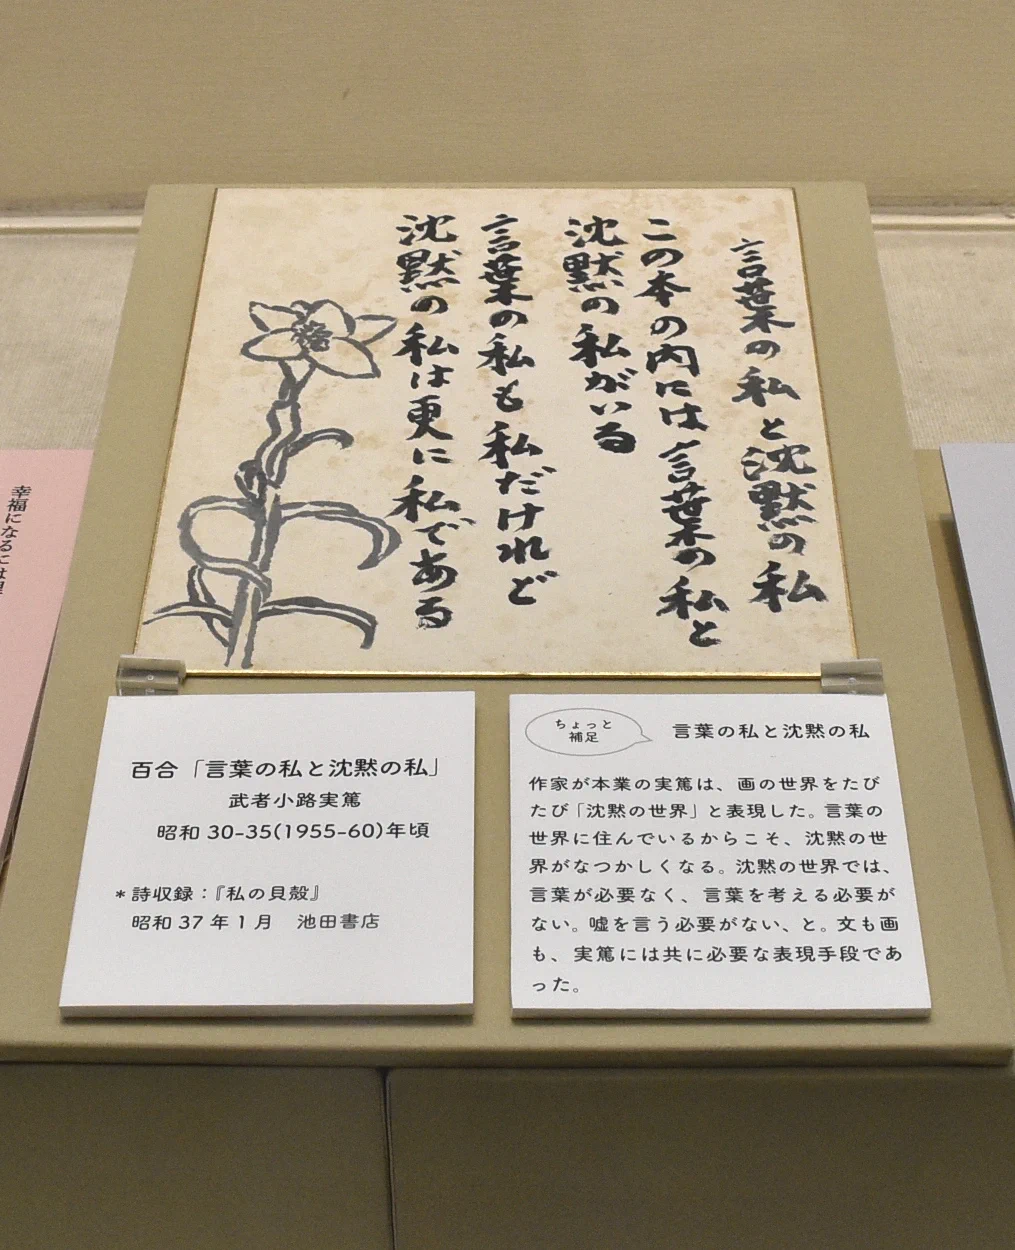 言葉の私と沈黙の私
この本の内には言葉の私と
沈黙の私がいる
言葉の私も私だけれど
沈黙の私は更に私である
百合「言葉の私と沈黙の私」
武者小路実篤
昭和30-35(1955-60)年頃
*詩収録:『私の貝殻』
昭和37年1月 池田書店
ちょっと
補足
言葉の私と沈黙の私
作家が本業の実篤は、画の世界をたび
たび「沈黙の世界」と表現した。言葉の
世界に住んでいるからこそ、沈黙の世
界がなつかしくなる。沈黙の世界では、
言葉が必要なく、言葉を考える必要が
ない。嘘を言う必要がない、と。文も画
も、実篤には共に必要な表現手段であ
った。
幸福になるには